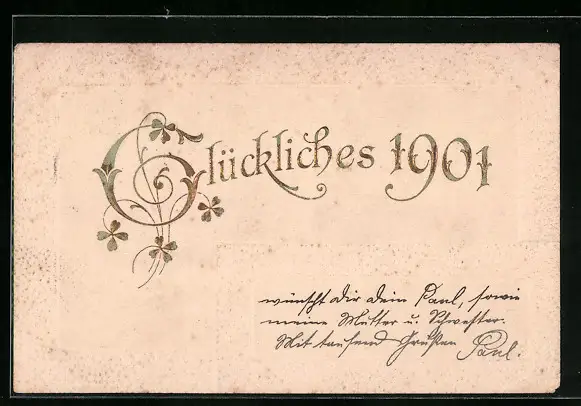 Glückliches 1901
wünscht Dir Dein Paul, sowie
meine Mutter u. Schwester.
Mit tausend Grüßen
Paul.